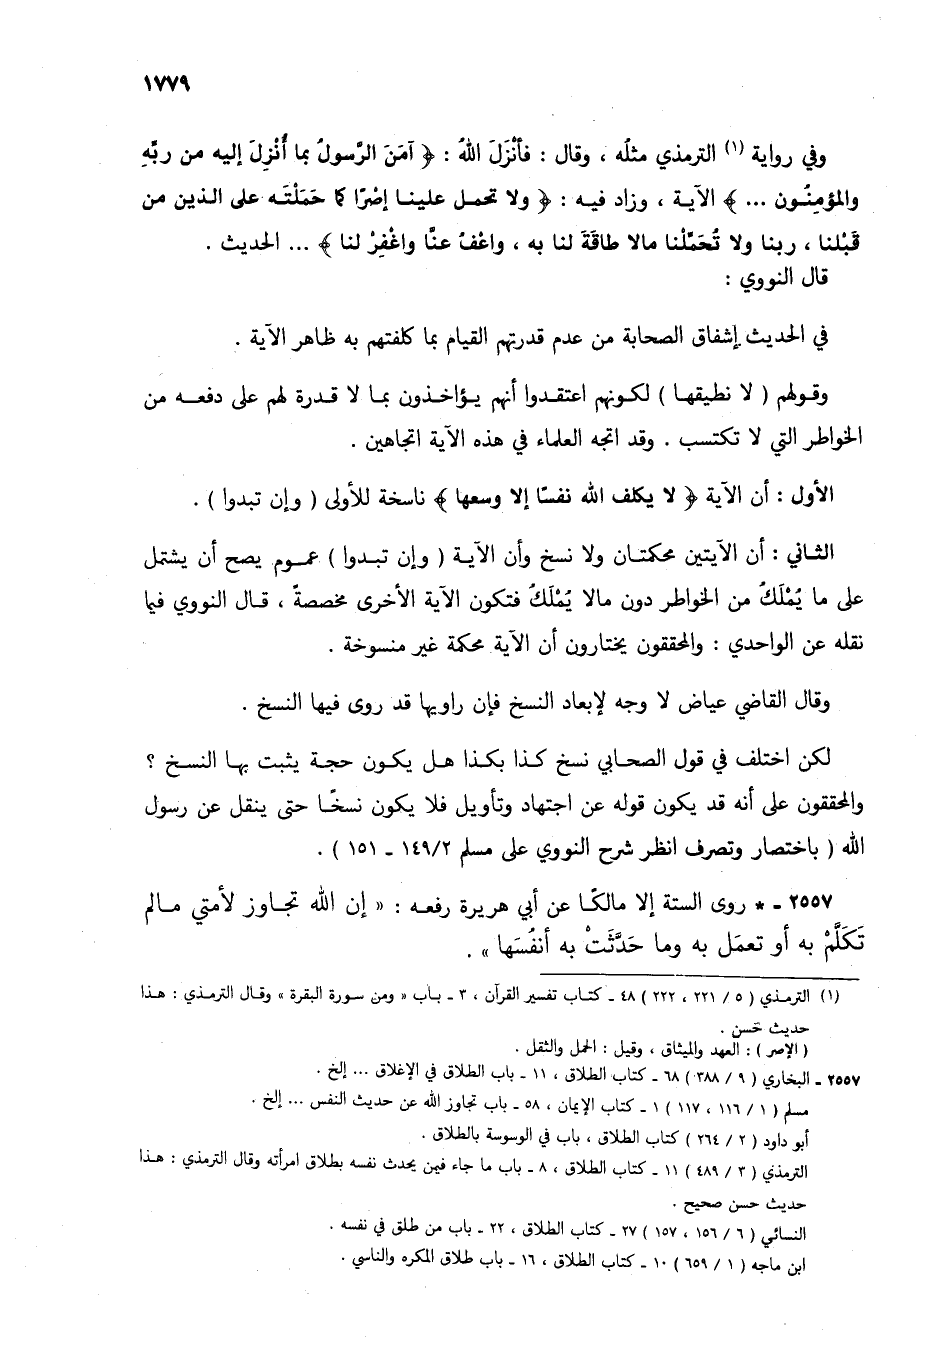 ١٧٧٩
وفي رواية (١) الترمذي مثلُه ، وقال : فأنْزَلَ اللهُ : ﴿ آمَنَ الرَّسولُ بما أُنْزِلَ إليه من ربِّهِ
والمؤمِنُـون ... ﴾ الآيـة ، وزاد فيـه : ﴿ ولا تحمـل علينـا إصْرًا كما حَمَلْتَـه على الـذين من
قَبْلنا ، ربنا ولا تُحَمِّلْنا مالا طاقَةَ لنا به ، واعْفُ عنَّا واغْفِرْ لنا ﴾ ... الحديث .
قال النووي :
في الحديث إشفاق الصحابة من عدم قدرتهم القيام بما كلفتهم به ظاهر الآية .
وقـولهم ( لا نطيقهـا ) لكـونهم اعتقـدوا أنهم يـؤاخـذون بمـا لا قـدرة لهم على دفعـه من
الخواطر التي لا تكتسب . وقد اتجه العلماء في هذه الآية اتجاهين .
الأول : أن الآية ﴿ لا يكلف الله نفسًا إلا وسعها ﴾ ناسخة للأولى ( وإن تبدوا ) .
الثـاني : أن الآيتين محكمتـان ولا نسخ وأن الآيـة ( وإن تبـدوا ) عمـوم يصح أن يشتمل
على ما يُمْلَكُ من الخواطر دون مالا يُمْلَكُ فتكون الآية الأخرى مخصصةً ، قـال النووي فيما
نقله عن الواحدي : والمحققون يختارون أن الآية محكمة غير منسوخة .
وقال القاضي عياض لا وجه لإبعاد النسخ فإن راويها قد روى فيها النسخ .
لكن اختلف في قول الصحـابي نسخ كـذا بكـذا هـل يكـون حجـة يثبت بهـا النسـخ ؟
والمحققون على أنه قد يكون قوله عن اجتهاد وتأويل فلا يكون نسخًـا حتى ينقل عن رسول
الله ( باختصار وتصرف انظر شرح النووي على مسلم ١٤٩/٢ ـ ١٥١ ) .
٢٥٥٧ ـ * روى الستة إلا مالكًـا عن أبي هريرة رفعـه : « إن الله تجـاوز لأمتي مـالم
تَكَلَّمْ به أو تعمَل به وما حَدَّثَتْ به أنفُسَها » .
(١) الترمذي ( ٥ / ٢٢١ ، ٢٢٢ ) ٤٨ ـ كتـاب تفسير القرآن ، ٣ ـ بـاب « ومن سورة البقرة » وقـال الترمـذي : هـذا
حديث حَسن .
( الإصر ) : العهد والميثاق ، وقيل : الحمل والثقل .
٢٥٥٧ ـ البخاري ( ٩ / ٣٨٨ ) ٦٨ ـ كتاب الطلاق ، ١١ ـ باب الطلاق في الإغلاق ... إلخ .
مسلم ( ١ / ١١٦ ، ١١٧ ) ١ ـ كتاب الإيمان ، ٥٨ ـ باب تجاوز الله عن حديث النفس ... إلخ .
أبو داود ( ٢ / ٢٦٤ ) كتاب الطلاق ، باب في الوسوسة بالطلاق .
الترمذي ( ٣ / ٤٨٩ ) ١١ ـ كتاب الطلاق ، ٨ ـ باب ما جاء فيمن يحدث نفسه بطلاق امرأته وقال الترمذي : هـذا
حديث حسن صحيح .
النسائي ( ٦ / ١٥٦ ، ١٥٧ ) ٢٧ ـ كتاب الطلاق ، ٢٢ ـ باب من طلق في نفسه .
ابن ماجه ( ١ / ٦٥٩ ) ١٠ ـ كتاب الطلاق ، ١٦ ـ باب طلاق المكره والناسي .